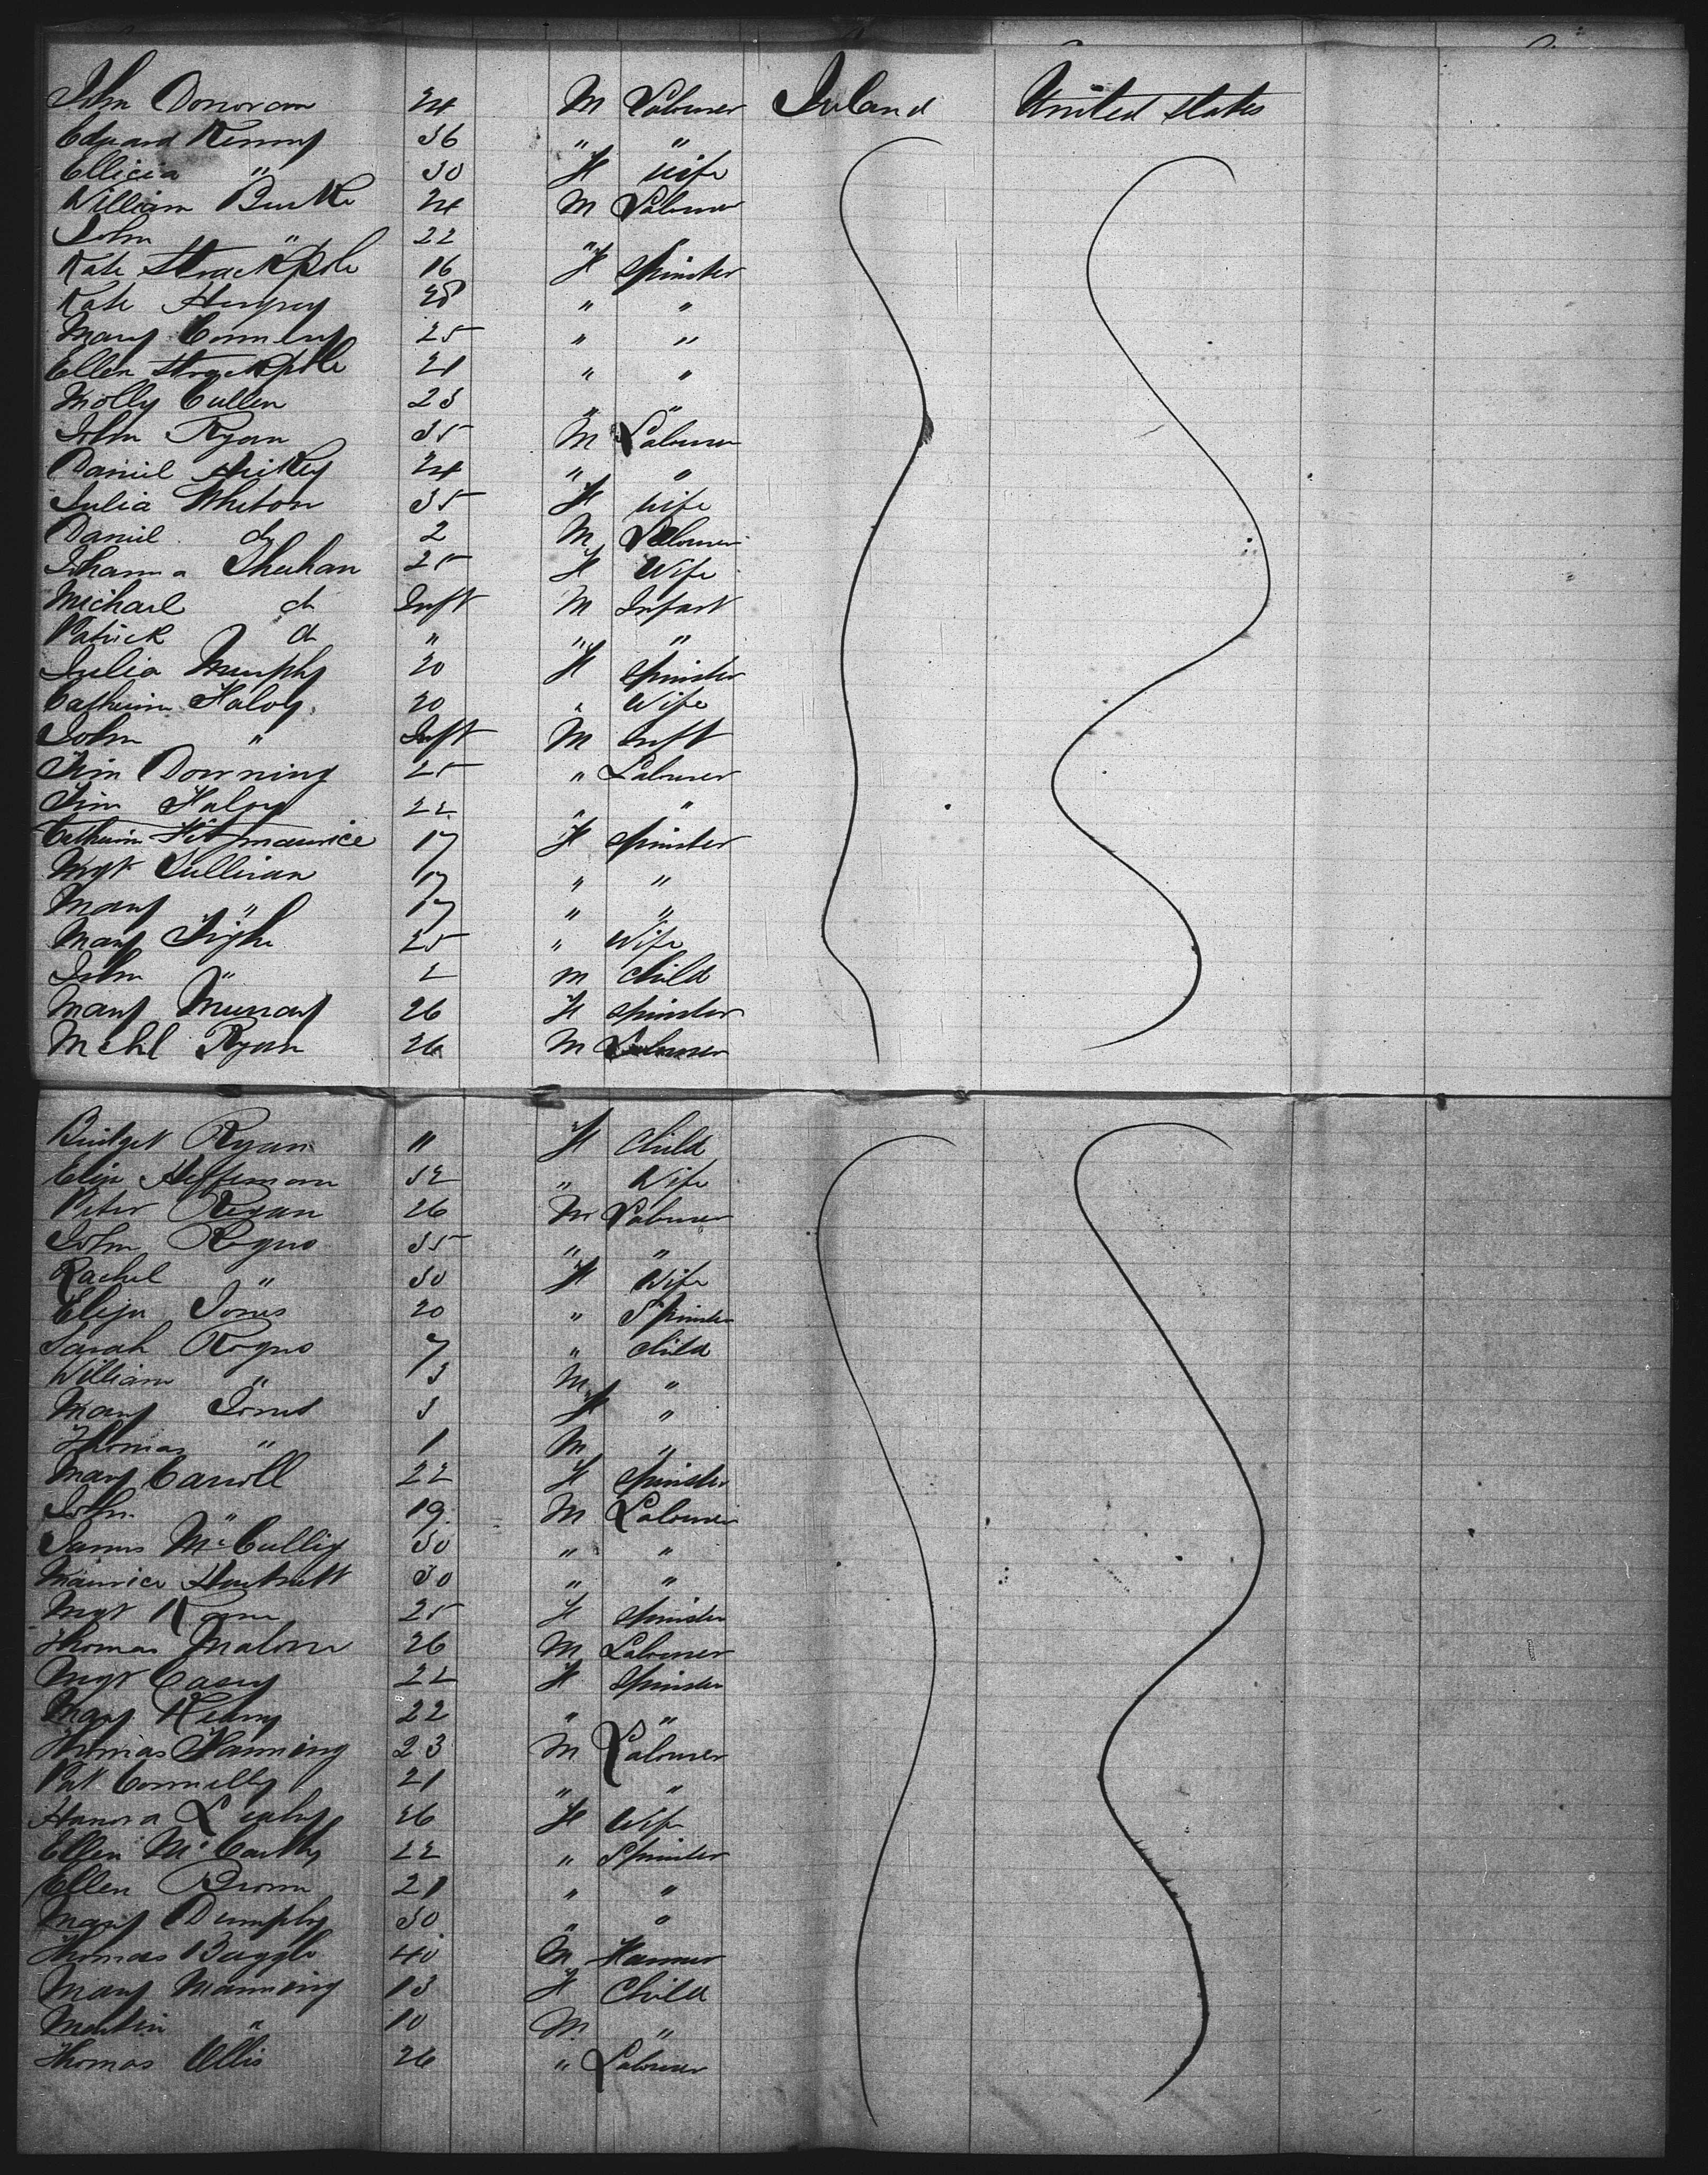 John Donovan 24 M Labourer Ireland United States
Edward Kenny 36 " "
Ellicia " 30 F Wife
William Burke 24 M Labourer
John " 22 " "
Kate Strackpole 16 F Spinster
Kate Hengrey 28 " "
Mary Connery 25 " "
Ellen Strackpole 21 " "
Molly Cullen 23 " "
John Ryan 35 M Labourer
Daniel Hickey 24 " "
Julia Wheton 35 F Wife
Daniel do 2 M Labourer
Johanna Sheehan 25 F Wife
Michael do Inft M Infant
Patrick do " " "
Julia Murphy 20 F Spinster
Catherine Haloy 20 " Wife
John " Inft M Inft
Tim Downing 25 " Labourer
Tim Haloy 22 " "
Catherine Fitzmaurice 17 F Spinster
Mgt Sullivan 17 " "
Mary " 17 " "
Mary Tighe 25 " Wife
John " 2 M Child
Mary Murray 26 F Spinster
Mchl Ryan 26 M Labourer
Bridget Ryan 11 F Child
Eliza Heffernan 32 " Wife
Peter Regan 26 M Labourer
John Rogns 35 " "
Rachel " 30 F Wife
Eliza Jones 20 " Spinster
Sarah Rogns 7 " Child
William " 3 M "
Mary Jones 3 F "
Thomas " 1 M "
Mary Carroll 22 F Spinster
John " 19 M Labourer
James McCullig 30 " "
Maurice Hartnett 30 " "
Mgt Kane 25 F Spinster
Thomas Malone 26 M Labourer
Mgt Casey 22 F Spinster
Mary Kenny 22 " "
Thomas Hanning 23 M Labourer
Pat Connelly 21 " "
Hanora Leahy 26 F Wife
Ellen McCarthy 22 " Spinster
Ellen Brown 21 " "
Mary Dumphy 30 " "
Thomas Buggle 40 M Farmer
Mary Manning 13 F Child
Martin " 10 M "
Thomas Ellis 26 " Labourer